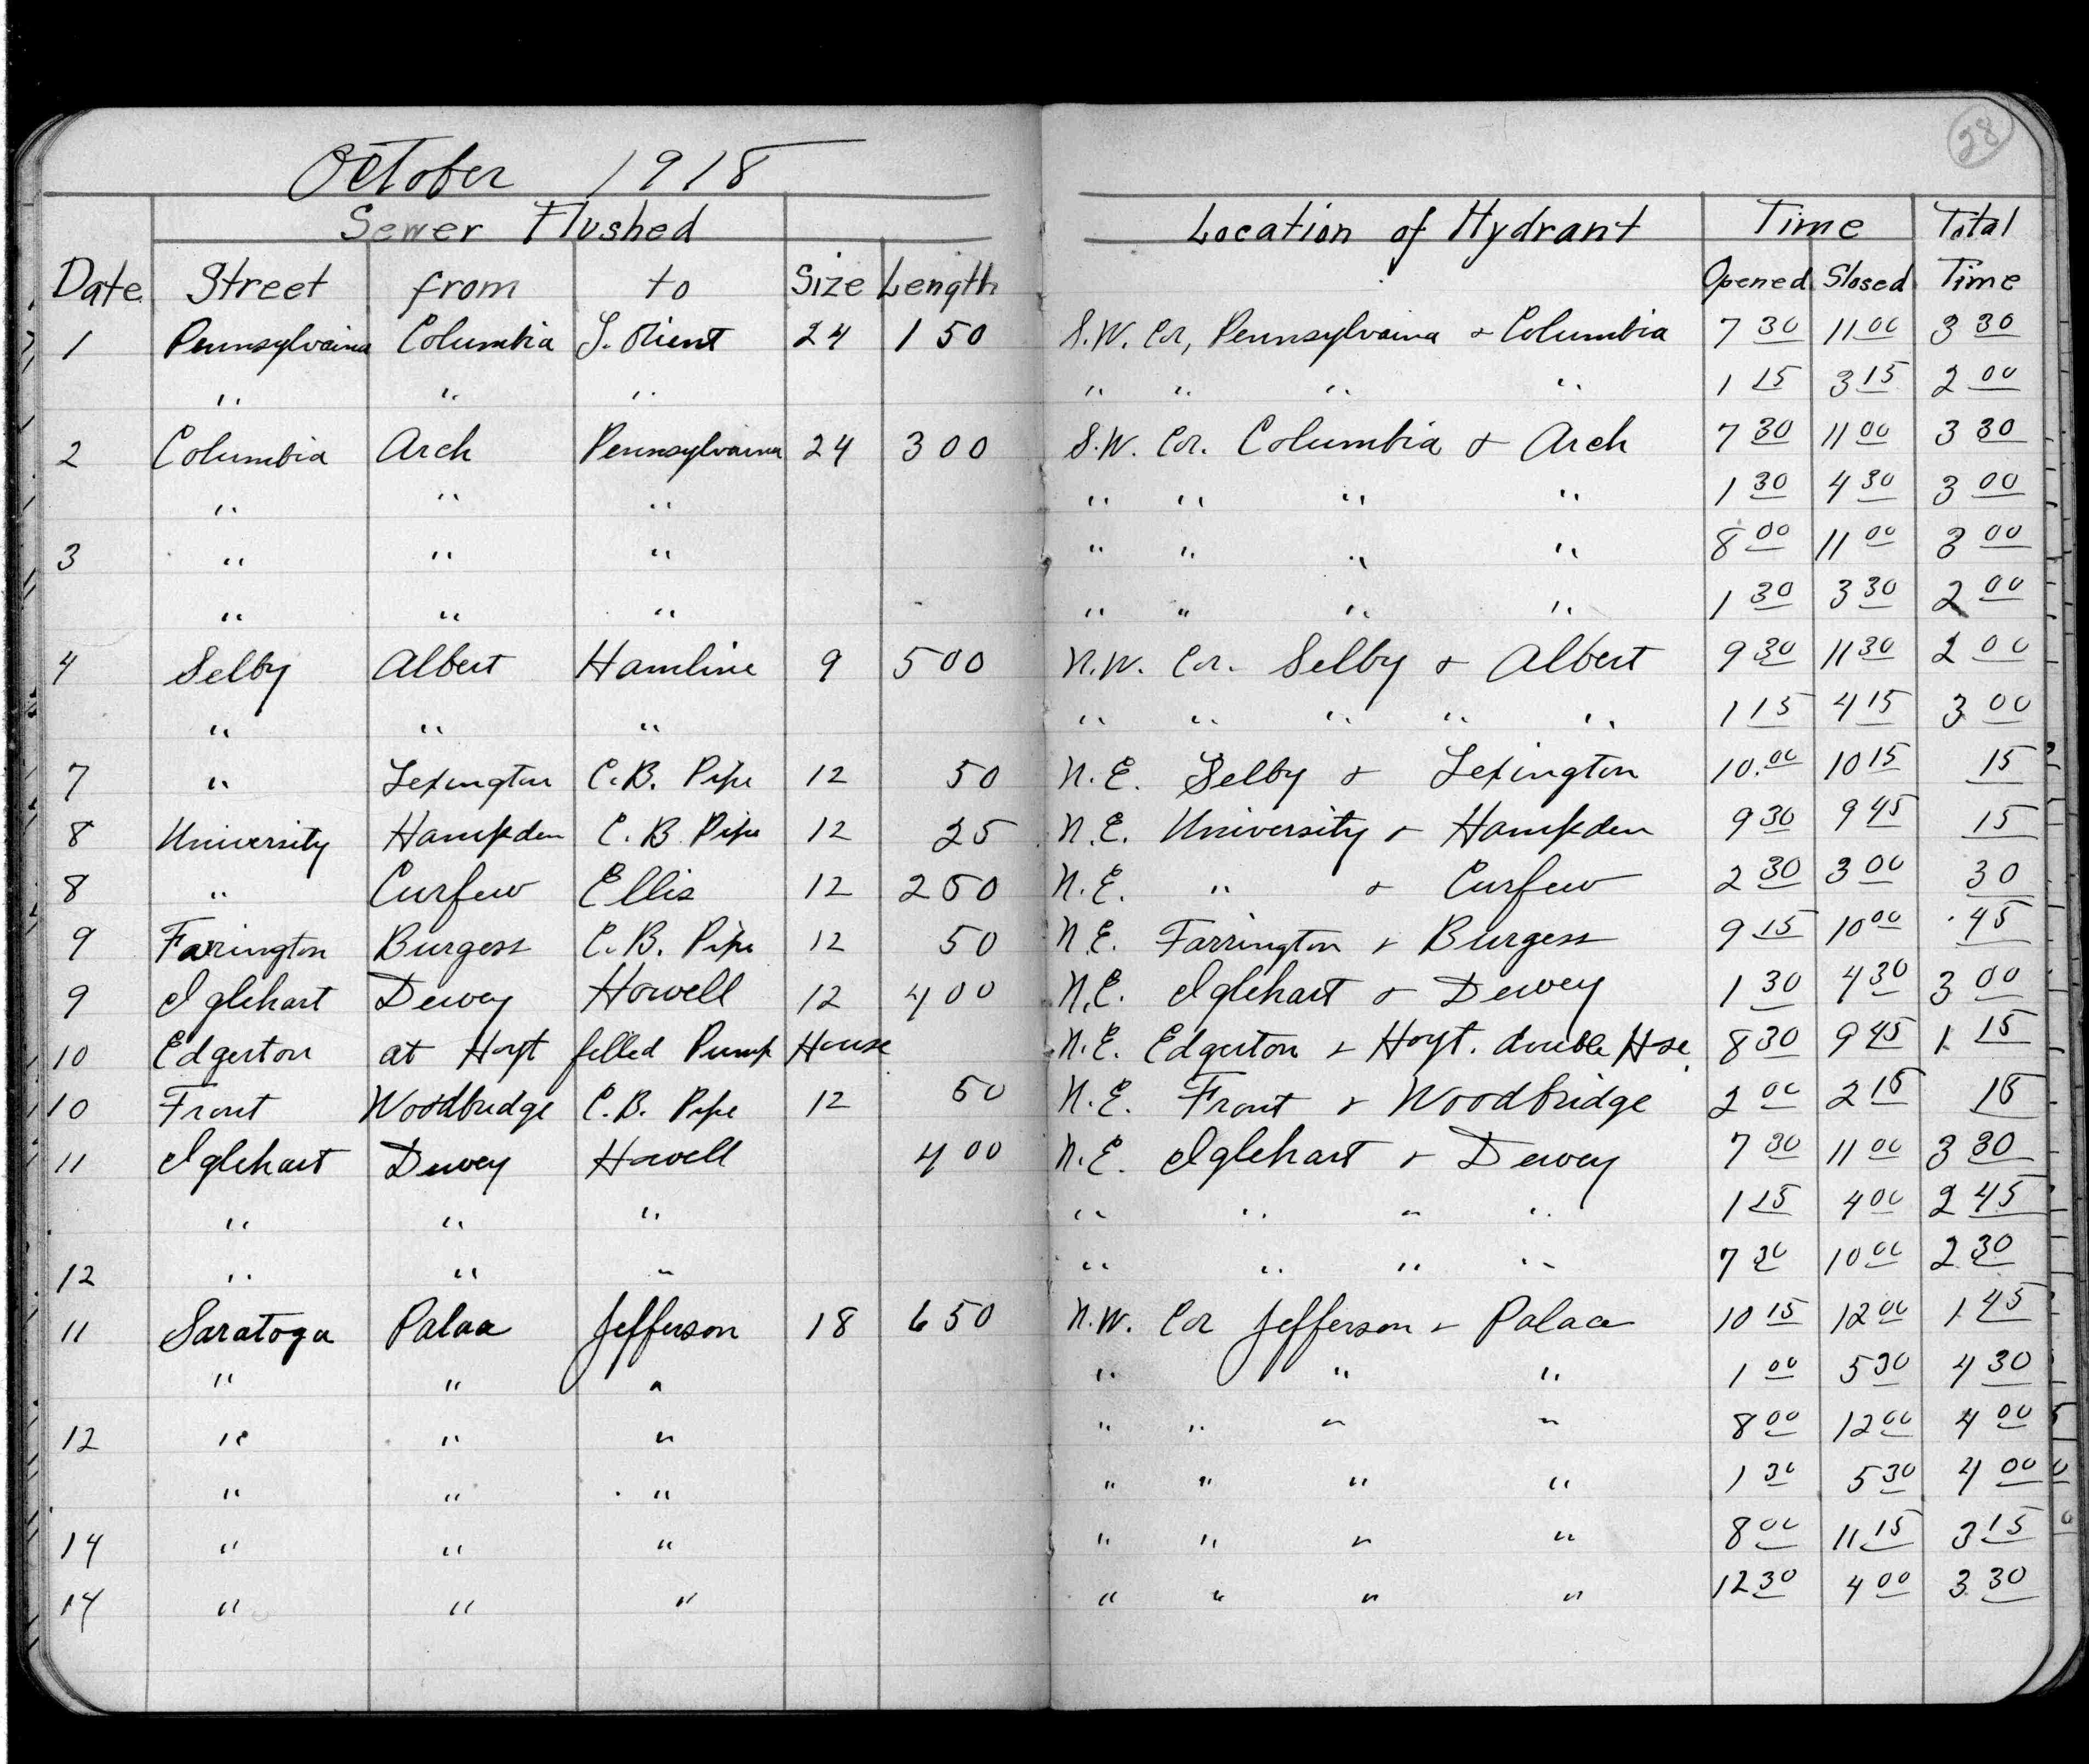 28
October 1918
Sewer Flushed Location of Hydrant Time Total
Date Street from to Size Length Opened Slosed Time
1 Pennsylvaina Columbia S. Orient 24 150 S.W. Cor, Pennsylvaina & Columbia 7 30 11 00 3 30
" " " " " " " 1 15 3 15 2 00
2 Columbia Arch Pennsylvaina 24 300 S.W. Cor. Columbia & Arch 7 30 11 00 3 30
" " " " " " " 1 30 4 30 3 00
3 " " " " " " " 8 00 11 00 3 00
" " " " " " " 1 30 3 30 2 00
4 Selby Albert Hamline 9 500 N.W. Cor. Selby & Albert 9 30 11 30 2 00
" " " " " " " " 1 15 4 15 3 00
7 " Lexington C.B. Pipe 12 50 N.E. Selby & Lexington 10.00 10 15 15
8 University Hampden C.B. Pipe 12 25 N.E. University & Hampden 9 30 9 45 15
8 " Curfew Ellis 12 250 N.E. " & Curfew 2 30 3 00 30
9 Farrington Burgess C.B. Pipe 12 50 N.E. Farrington & Burgess 9 15 10 00 45
9 Iglehart Dewey Howell 12 400 N.E. Iglehart & Dewey 1 30 4 30 3 00
10 Edgerton at Hoyt filled Pump House N.E. Edgerton & Hoyt. double Hse. 8 30 9 45 1 15
10 Front Woodbridge C.B. Pipe 12 50 N.E. Front & Woodbridge 2 00 2 15 15
11 Iglehart Dewey Howell 400 N.E. Iglehart & Dewey 7 30 11 00 3 30
" " " " " " " 1 15 4 00 2 45
12 " " " " " " " 7 30 10 00 2 30
11 Saratoga Palace Jefferson 18 650 N.W. Cor Jefferson & Palace 10 15 12 00 1 45
" " " " " " 1 00 5 30 4 30
12 " " " " " " " 8 00 12 00 4 00
" " " " " " " 1 30 5 30 4 00
14 " " " " " " " 8 00 11 15 3 15
14 " " " " " " " 12 30 4 00 3 30